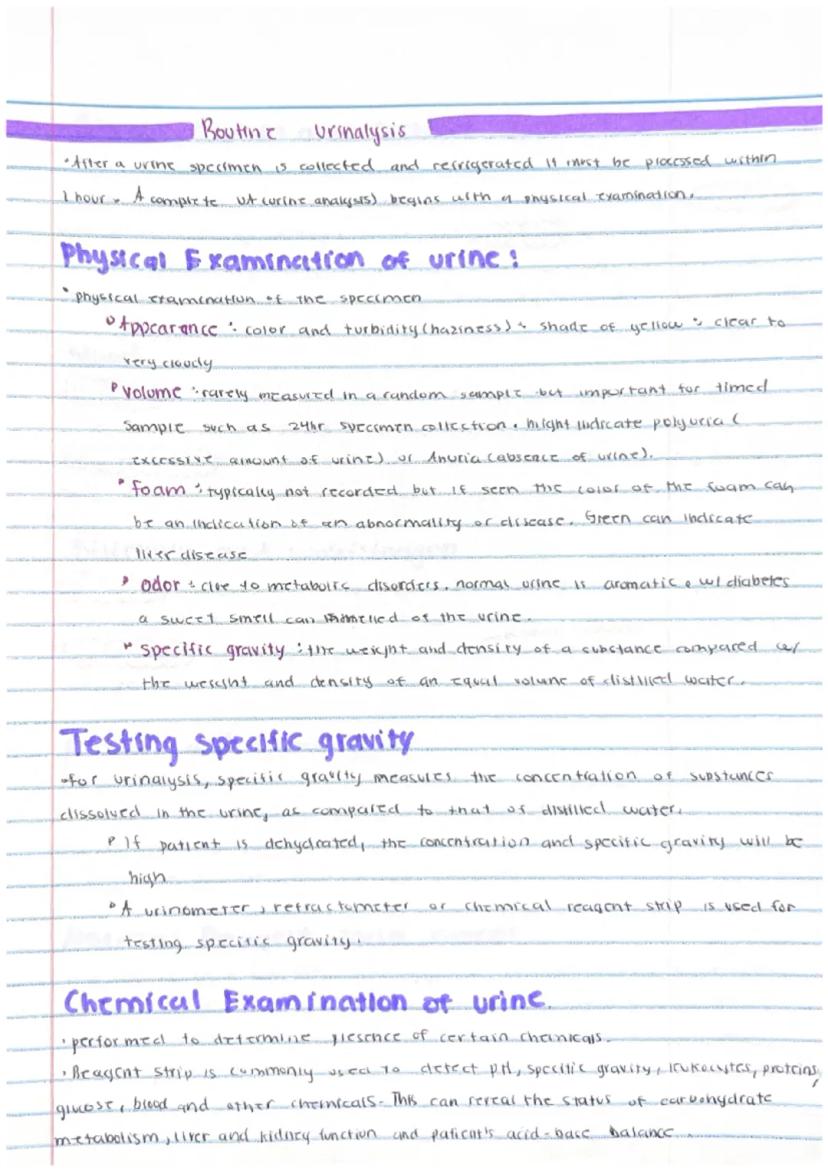 Routine Urinalysis
•After a urine specimen is collected and refrigerated it must be processed within
1 hour. A complete UA (urine analysis) begins with a physical examination.
Physical Examination of urine:
• physical examination of the specimen
• Appearance : color and turbidity (haziness) : shade of yellow : clear to
very cloudy
• volume : rarely measured in a random sample but important for timed
sample such as 24hr specimen collection. might indicate polyuria (
excessive amount of urine) or Anuria (absence of urine).
• foam : typically not recorded but if seen the color of the foam can
be an indication of an abnormality or disease. Green can indicate
liver disease
• odor : clue to metabolic disorders. normal urine is aromatic. w/ diabetes
a sweet smell can of the urine.
• specific gravity : the weight and density of a substance compared w/
the weight and density of an equal volume of distilled water.
Testing specific gravity
•for urinalysis, specific gravity measures the concentration of substances
dissolved in the urine, as compared to that of distilled water.
• If patient is dehydrated, the concentration and specific gravity will be
high
• A urinometer, refractometer or chemical reagent strip is used for
testing specific gravity.
Chemical Examination of urine.
• performed to determine presence of certain chemicals.
• Reagent strip is commonly used to detect pH, specific gravity, leukocytes, proteins,
glucose, blood and other chemicals. This can reveal the status of carbohydrate
metabolism, liver and kidney function and patient's acid-base balance.